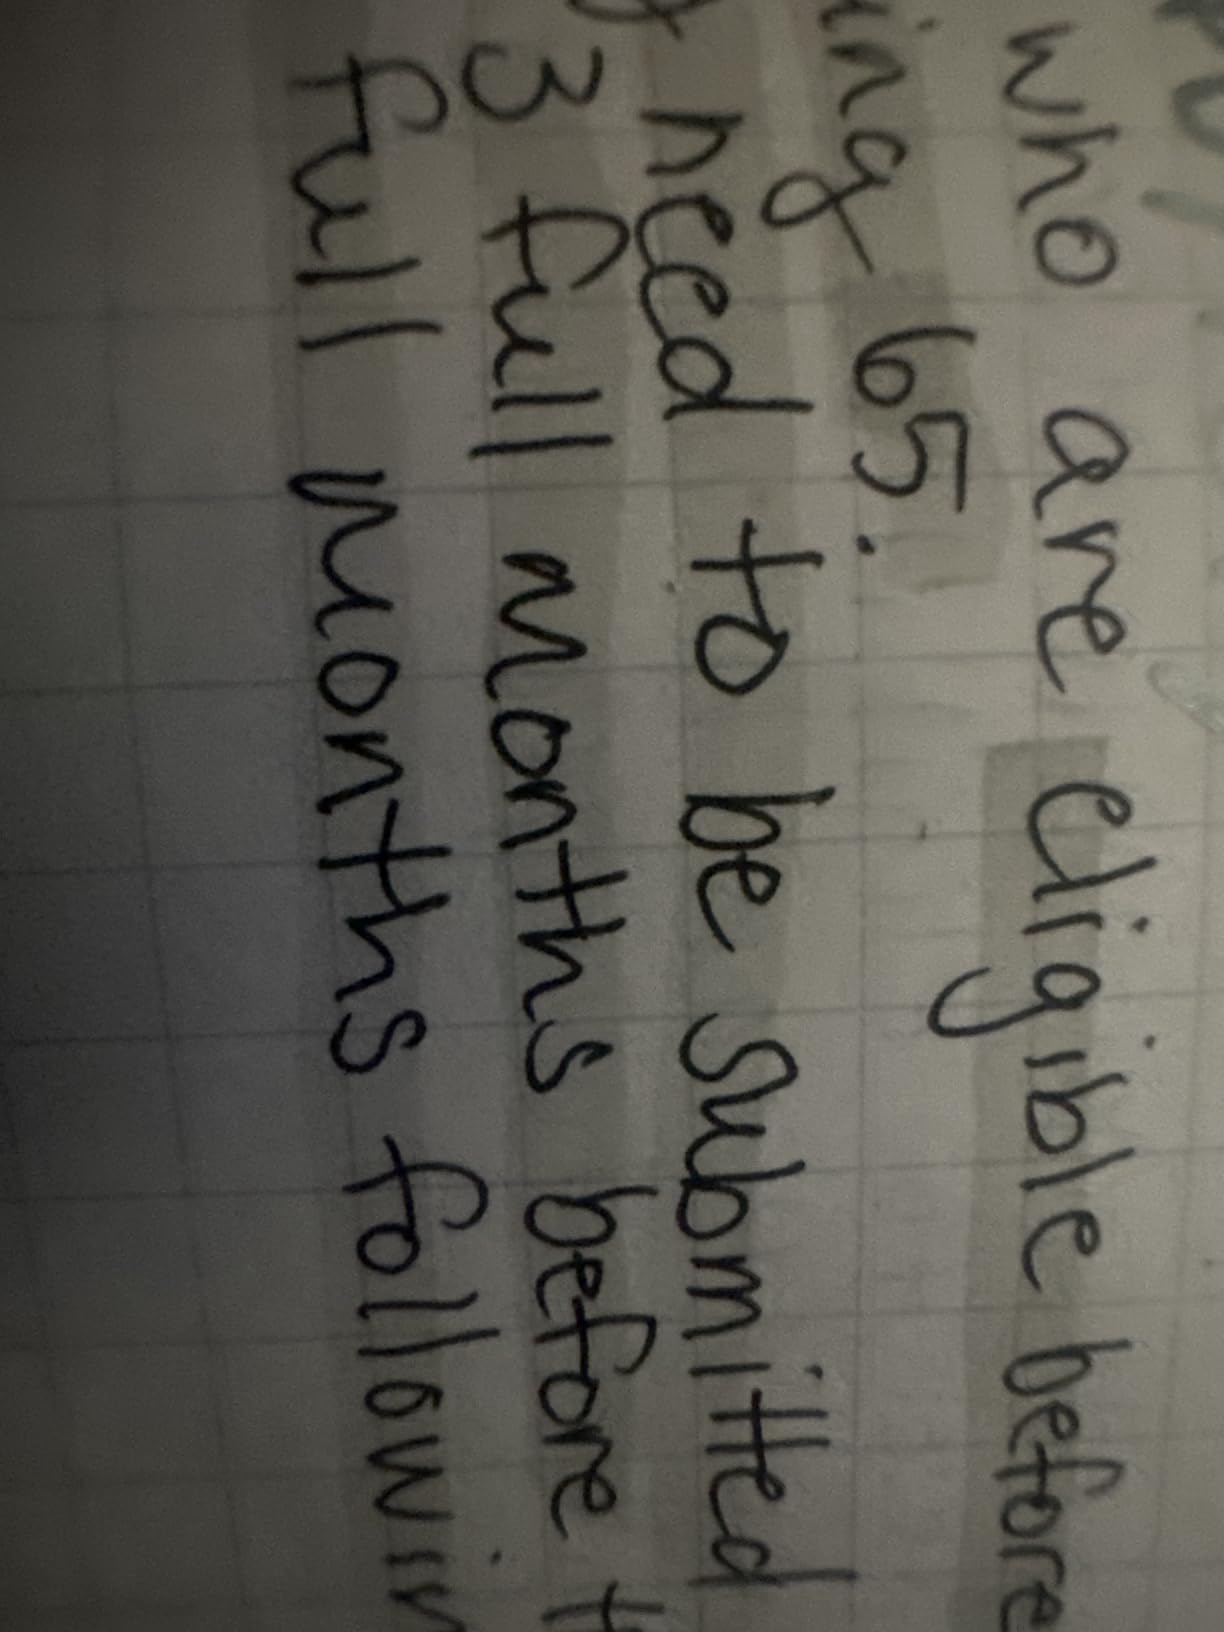 who are eligible before
ing 65.
need to be submitted
3 full months before
full months followin